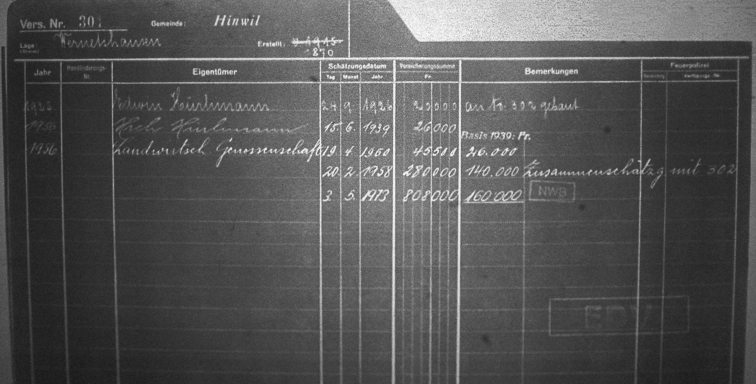 Vers. Nr. 301 Gemeinde: Hinwil
Lage: Wernetshausen Erstellt: v. 1915
1870
Schätzungsdatum Versicherungssumme Feuerpolizei
Jahr Handänderungs- Nr. Eigentümer Tag Monat Jahr Fr. Bemerkungen
1935 Edwin Hürlimann 24 9. 1926 25000 an Nr. 302 gebaut
1936 Hch. Hürlimann 15. 6. 1939 26000 Basis 1939: Fr.
1956 Landwirtsch. Genossenschaft 19. 4. 1950 45500 26.000
20. 2. 1958 280000 140.000 Zusammenschätzg mit 302
3. 5. 1973 808000 160'000 NWB
EDV